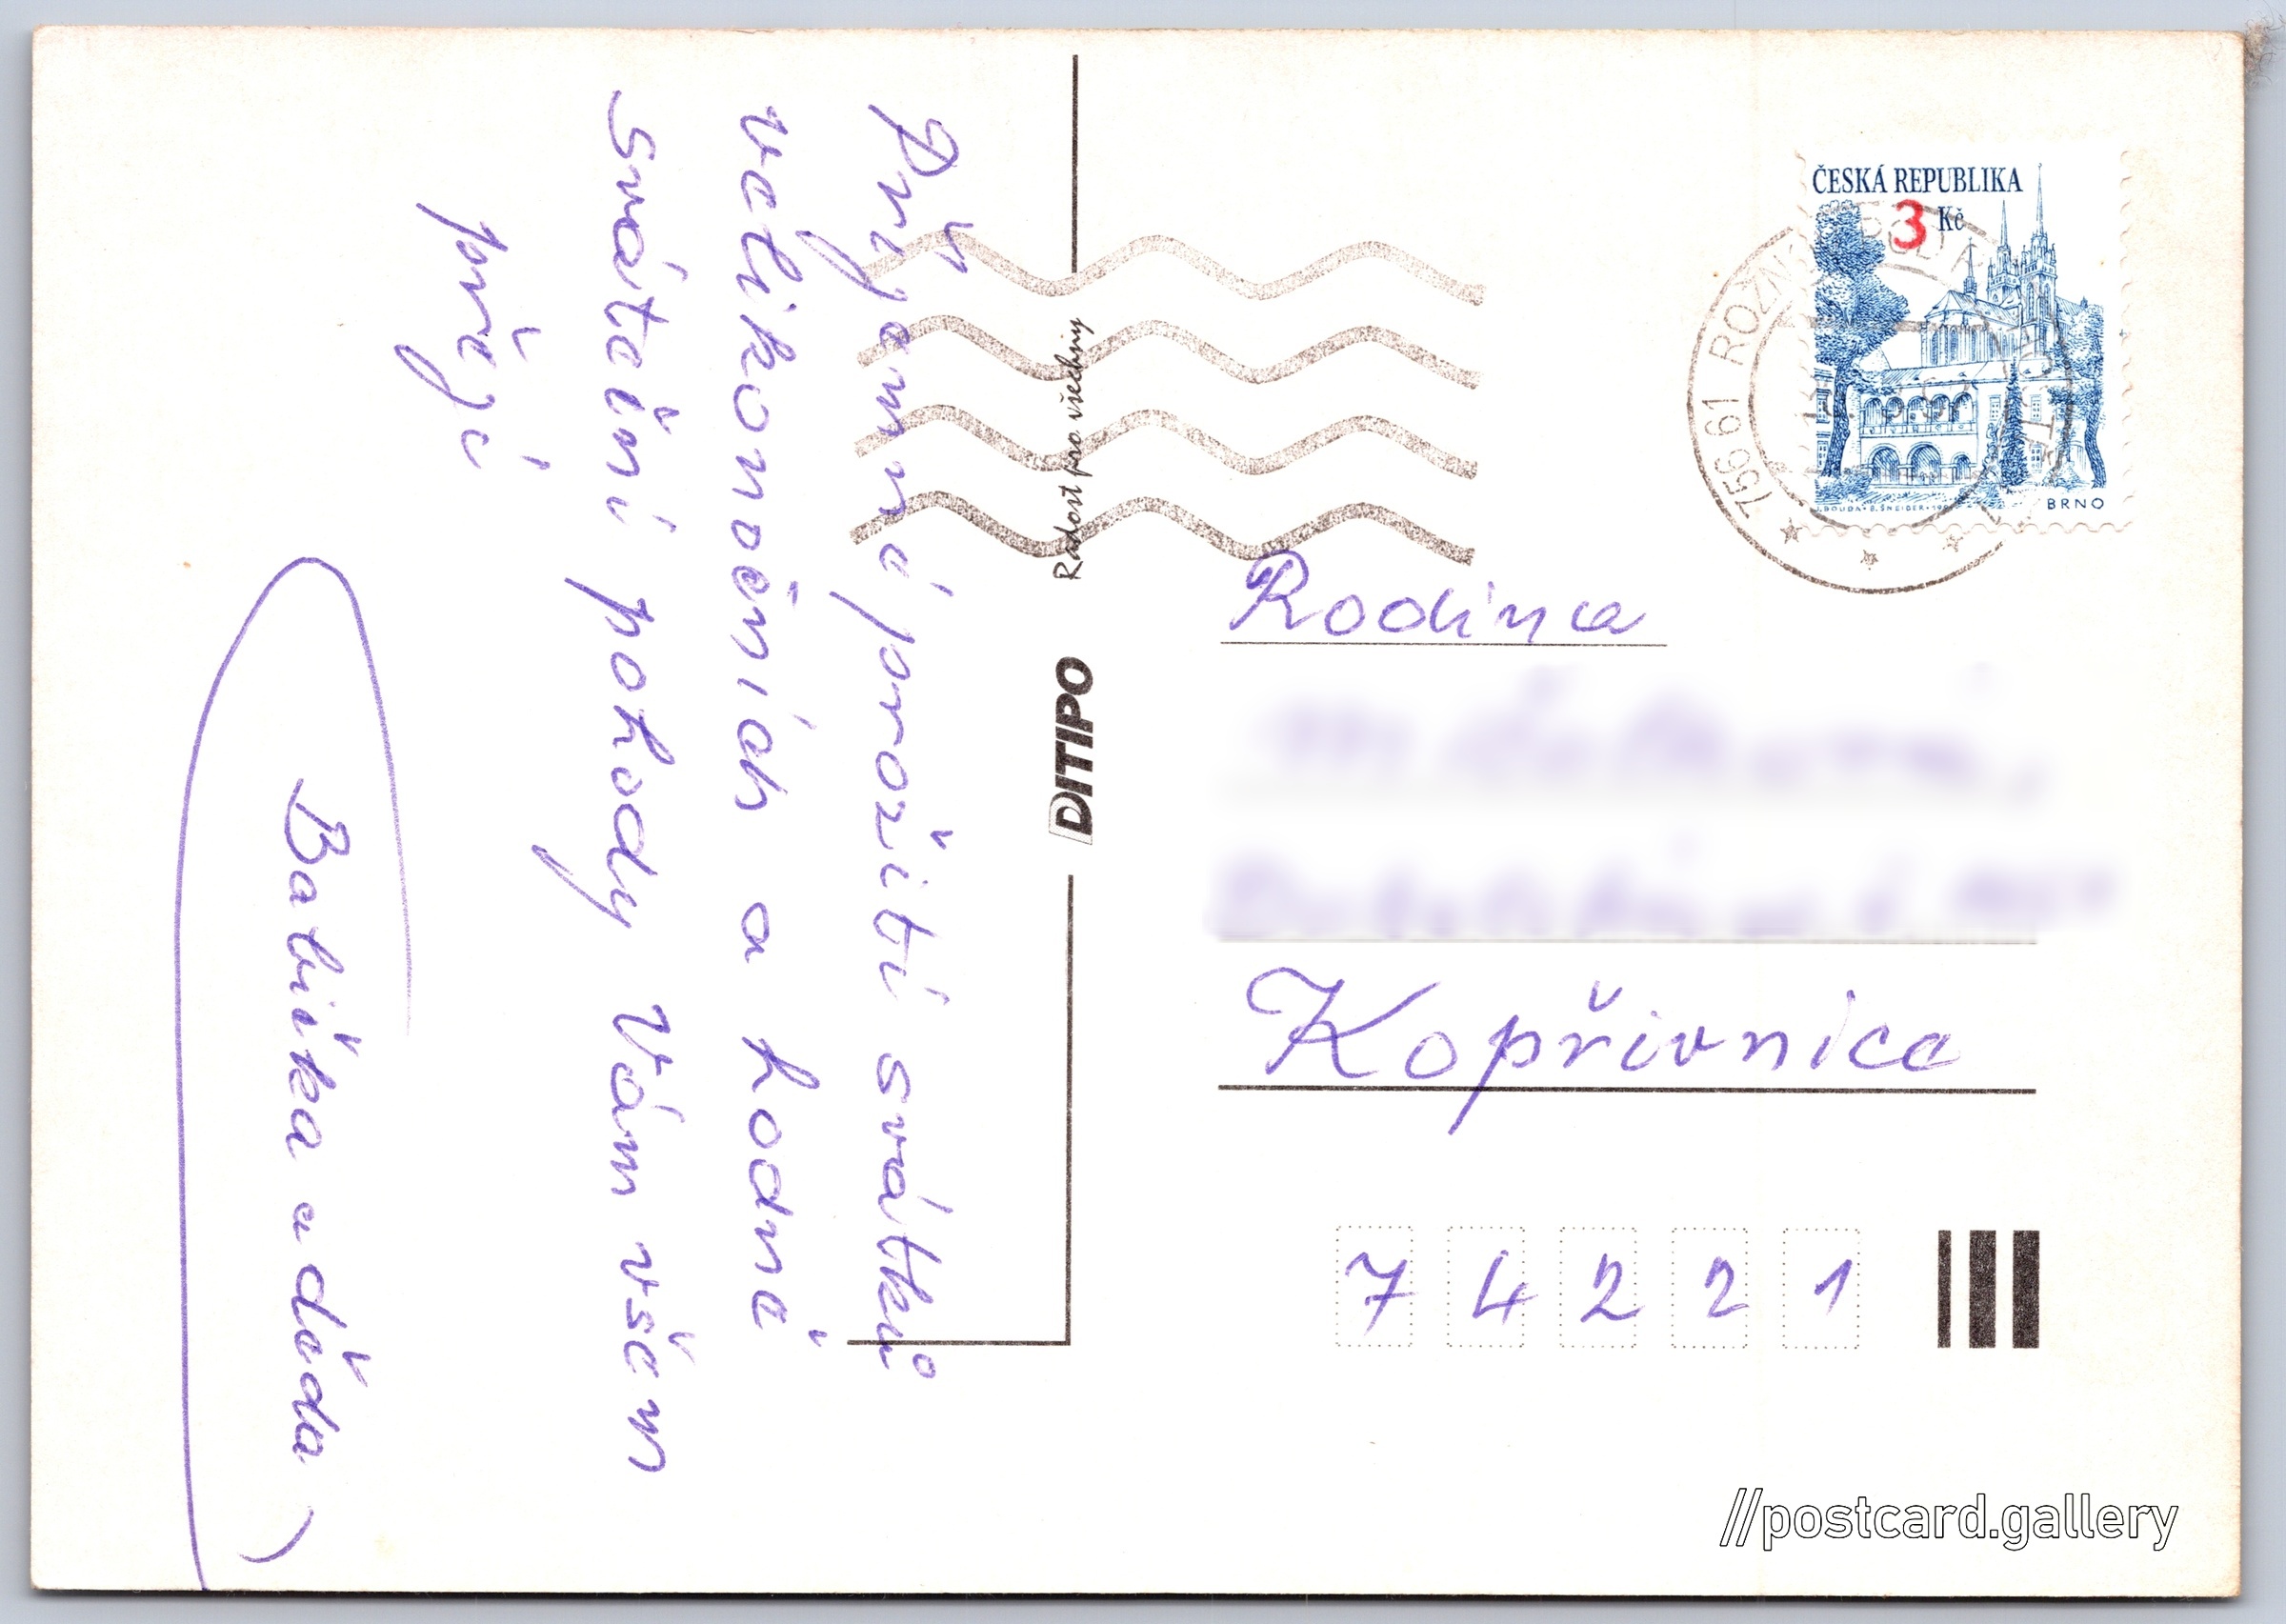 Příjemné prožití svátků
velikonočních a hodně
sváteční pohody Vám všem
přejí
Babička a děda
Radost pro všechny
DITIPO
ČESKÁ REPUBLIKA
3 Kč
BRNO
756 61 ROŽNOV
Rodina
Kopřivnice
7 4 2 2 1
//postcard.gallery